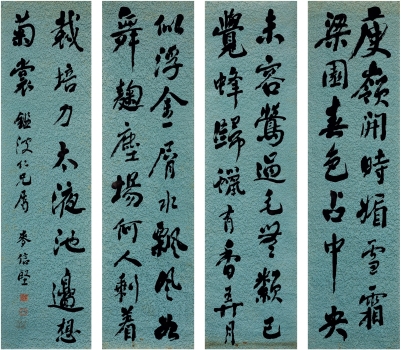 庾嶺開時媚雪霜
梁園春色占中央
未容鶯過毛無類已
覺蜂歸蠟有香弄月
似浮金屑水飄風如
舞麴塵場何人剩着
栽培力太液池邊想
菊裳 鑑波仁兄屬 麥信堅